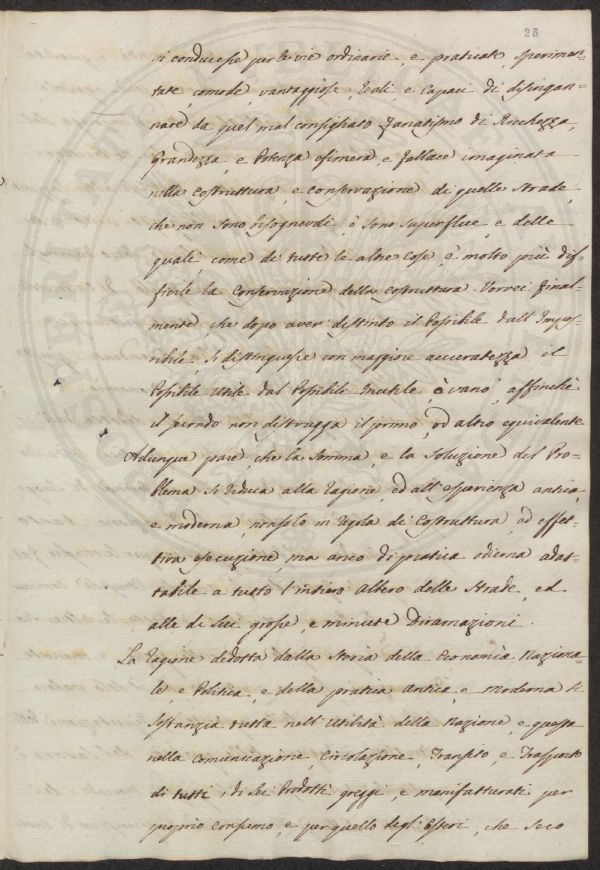 25
si conducesse per le vie ordinarie, e praticate, sperimen-
tate, comode, vantaggiose, reali, e capaci di disingan-
nare da quel mal consigliato Fanatismo di Ricchezza,
Grandezza, e Potenza efimera, e fallace imaginata
nella Costruttura, e conservazione di quelle strade,
che non sono bisognevoli, ò sono superflue, e delle
quali come di tutte le altre cose, è molto più dif-
ficile la Conservazione della Costruttura. Vorrei final-
mente, che dopo aver distinto il Possibile dall'Impos-
sibile, si distinguesse con maggiore accuratezza il
Possibile Utile dal Possibile Inutile, ò vano, affinchè
il secondo non distrugga il primo, od altro equivalente.
Adunque pare, che la somma, e la soluzione del Pro-
blema si riduca alla ragione, ed all'esperienza antica,
e moderna, non solo in regola di Costruttura, ed effet-
tiva esecuzione, ma anco di pratica odierna adat-
tabile a tutto l'intiero Albero delle Strade, ed
alle di Lui grosse, e minute Diramazioni.
La ragione dedotta dalla Storia della Economia Naziona-
le, e Politica, e della pratica antica, e moderna si
sostanzia tutta nell'Utilità della Nazione, e questa
nella Comunicazione, Circolazione, Transito, e Trasporto
di tutti i di Lei Prodotti greggi, e manifatturati per
proprio consumo, e per quello degl'Esteri, che seco